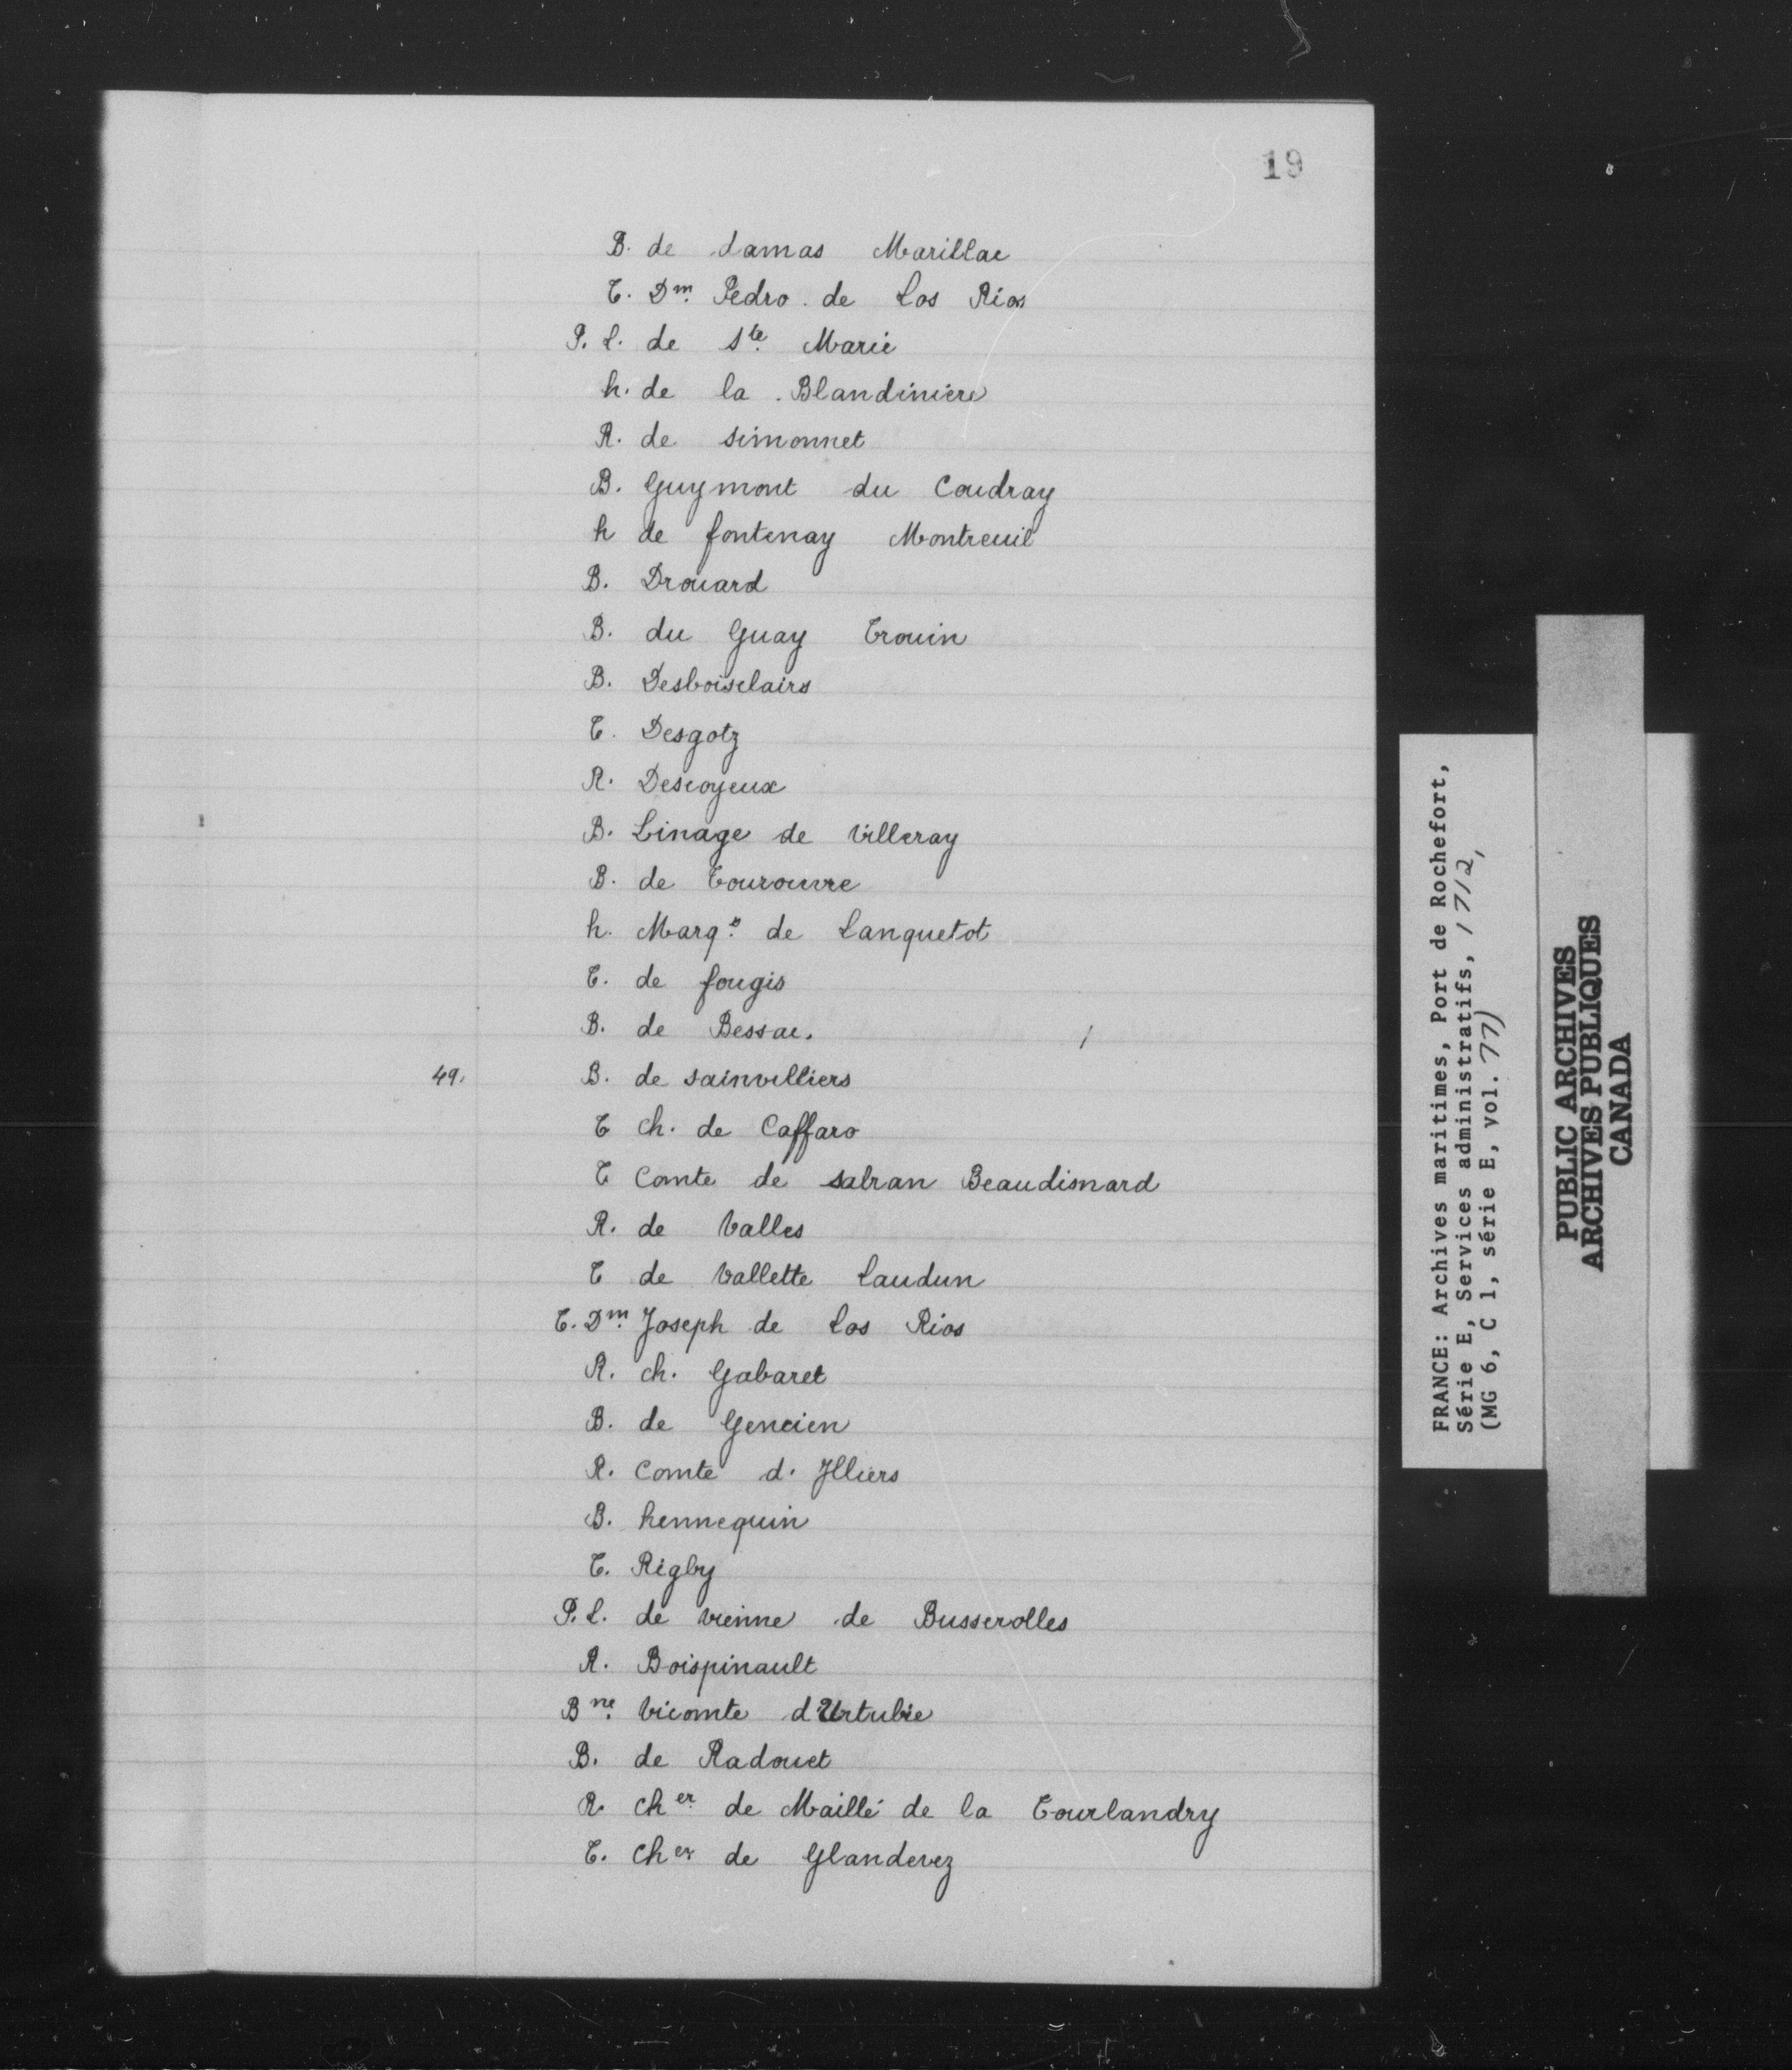 19
B. de damas Marillac
T. Dm. Pedro de Los Rios
P. L. de Ste. Marie
h. de la Blandiniere
R. de simonnet
B. Guymont du Coudray
h de fontenay Montreuil
B. Drouard
B. du Guay Trouin
B. Desboisclairs
T. Desgotz
R. Descoyeux
B. Linage de Villeray
B. de Tourouvre
h. Marqs. de Lanquetot
T. de fougis
B. de Bessac.
49. B. de sainvilliers
T ch. de Caffaro
T Comte de sabran Beaudismard
R. de Valles
T de Vallette Laudun
T. Dm. Joseph de Los Rios
R. ch. Gabaret
B. de Gencien
R. Comte d. Jlliers
B. hennequin
T. Rigby
P. L. de vienne de Busserolles
R. Boispinault
Bne. Vicomte d'Urtubie
B. de Radouet
R. cher. de Maillé de la Tourlandry
T. Cher de Glandevez
FRANCE: Archives maritimes, Port de Rochefort,
Série E, Services administratifs, 1712,
(MG 6, C 1, série E, vol. 77)
PUBLIC ARCHIVES
ARCHIVES PUBLIQUES
CANADA